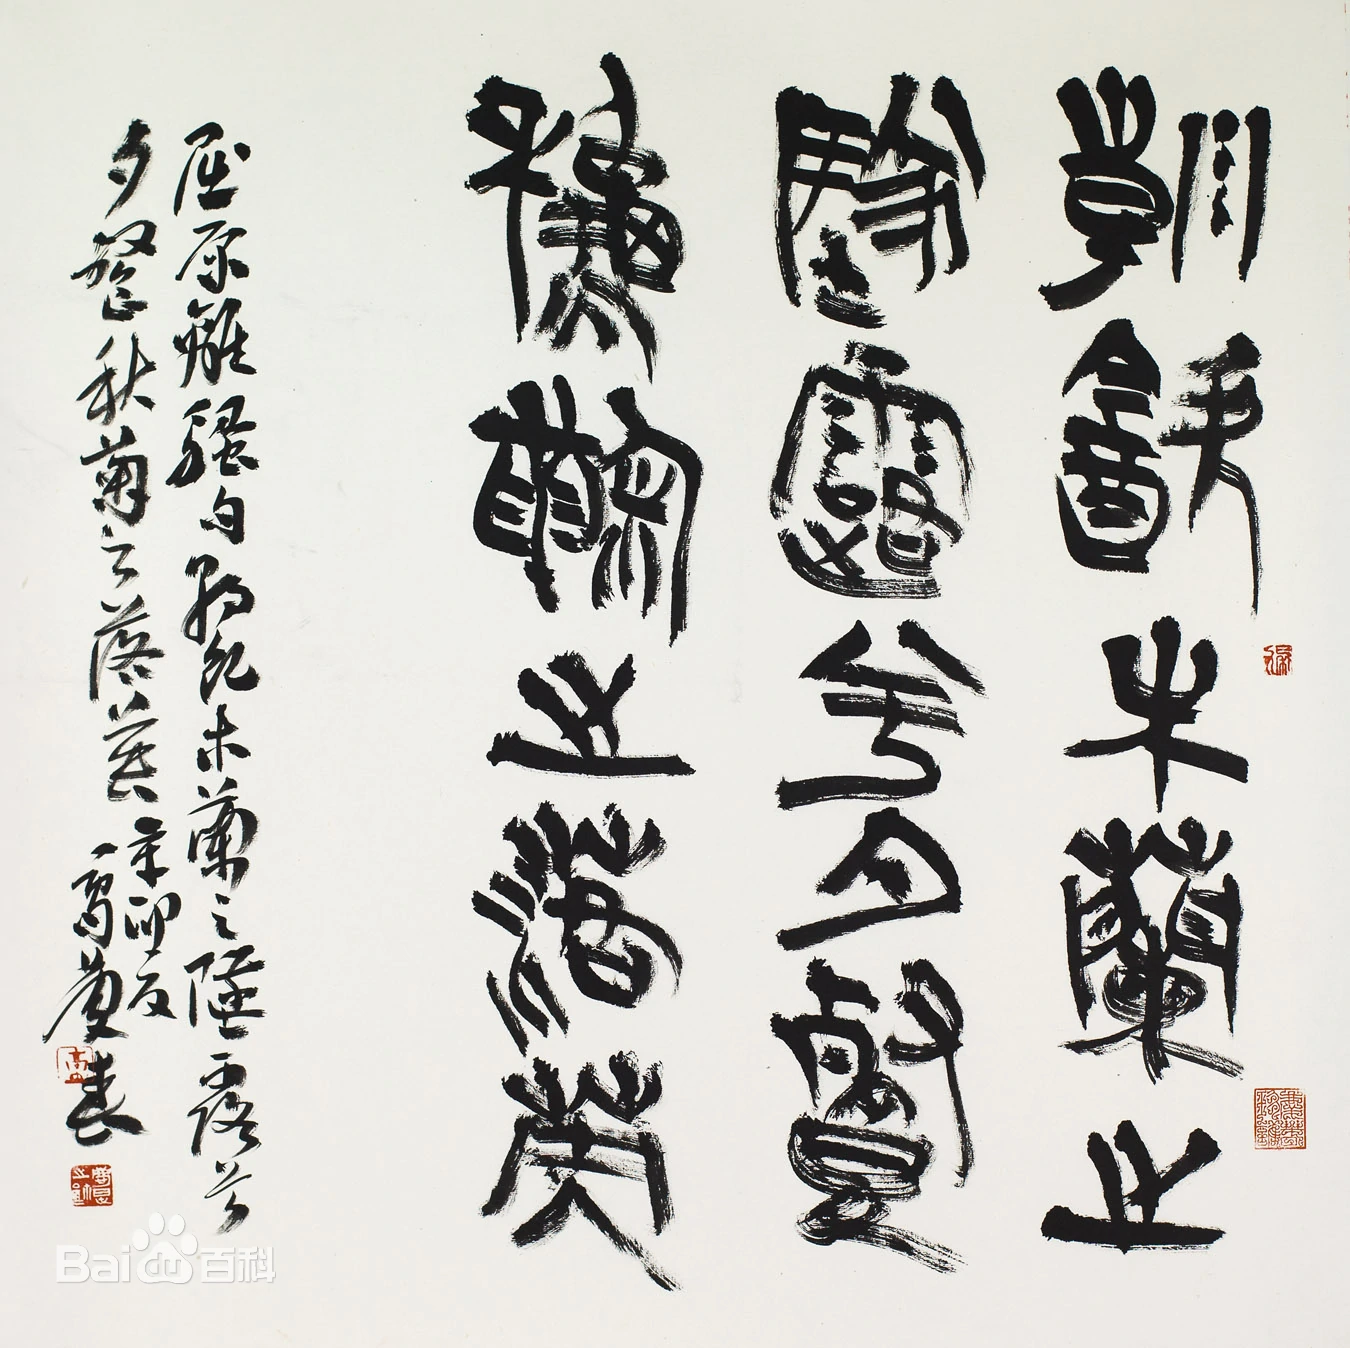 朝飲木蘭之
墜露兮夕餐
秋菊之落英
屈原離騷句朝飲木蘭之墜露兮
夕餐秋菊之落英辛卯夏高慶春
Baidu百科